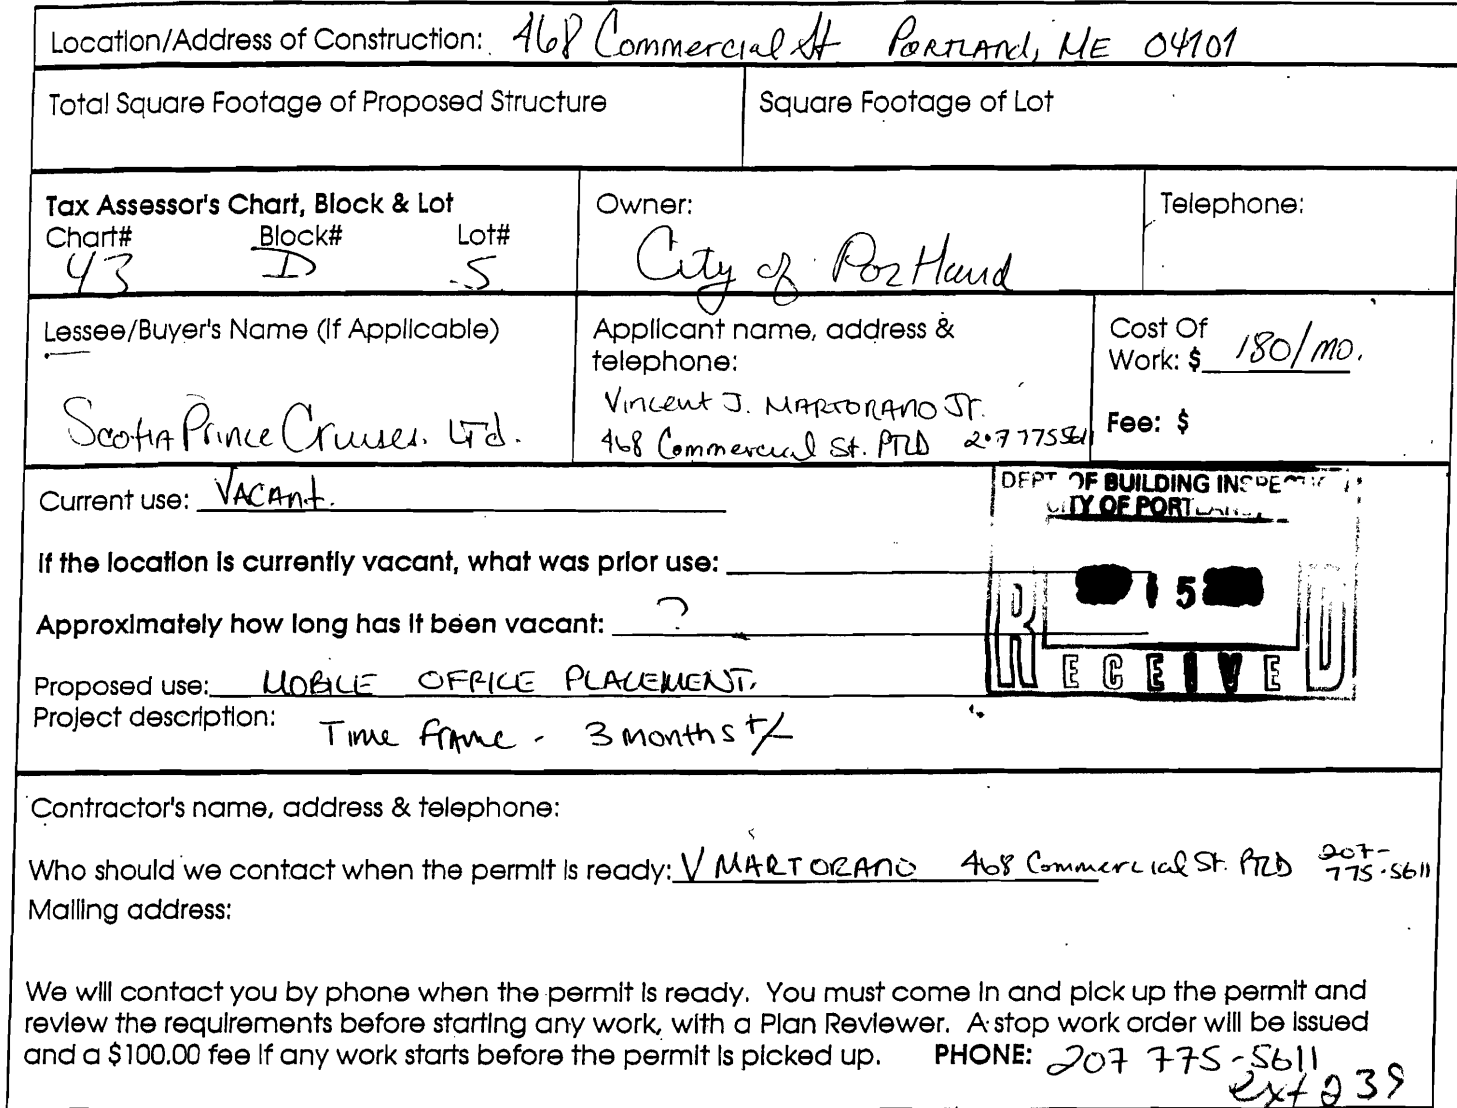 Location/Address of Construction: 468 Commercial St Portland, ME 04101
Total Square Footage of Proposed Structure
Square Footage of Lot
Tax Assessor's Chart, Block & Lot
Chart# Block# Lot#
43 D 5
Owner:
City of Portland
Telephone:
Lessee/Buyer's Name (If Applicable)
Scotia Prince Cruises. Ltd.
Applicant name, address &
telephone:
Vincent J. MARTORANO Jr.
468 Commercial St. PTLD 207 775 5611
Cost Of
Work: $ 180/mo.
Fee: $
Current use: VACANT.
If the location is currently vacant, what was prior use:
Approximately how long has it been vacant: ?
Proposed use: MOBILE OFFICE PLACEMENT.
Project description: Time frame - 3 months +/-
DEPT OF BUILDING INSPECTION
CITY OF PORTLAND
15
RECEIVED
Contractor's name, address & telephone:
Who should we contact when the permit is ready: V MARTORANO 468 Commercial St. PTLD 207-
775-5611
Mailing address:
We will contact you by phone when the permit is ready. You must come in and pick up the permit and
review the requirements before starting any work, with a Plan Reviewer. A stop work order will be issued
and a $100.00 fee if any work starts before the permit is picked up. PHONE: 207 775-5611
ext 239